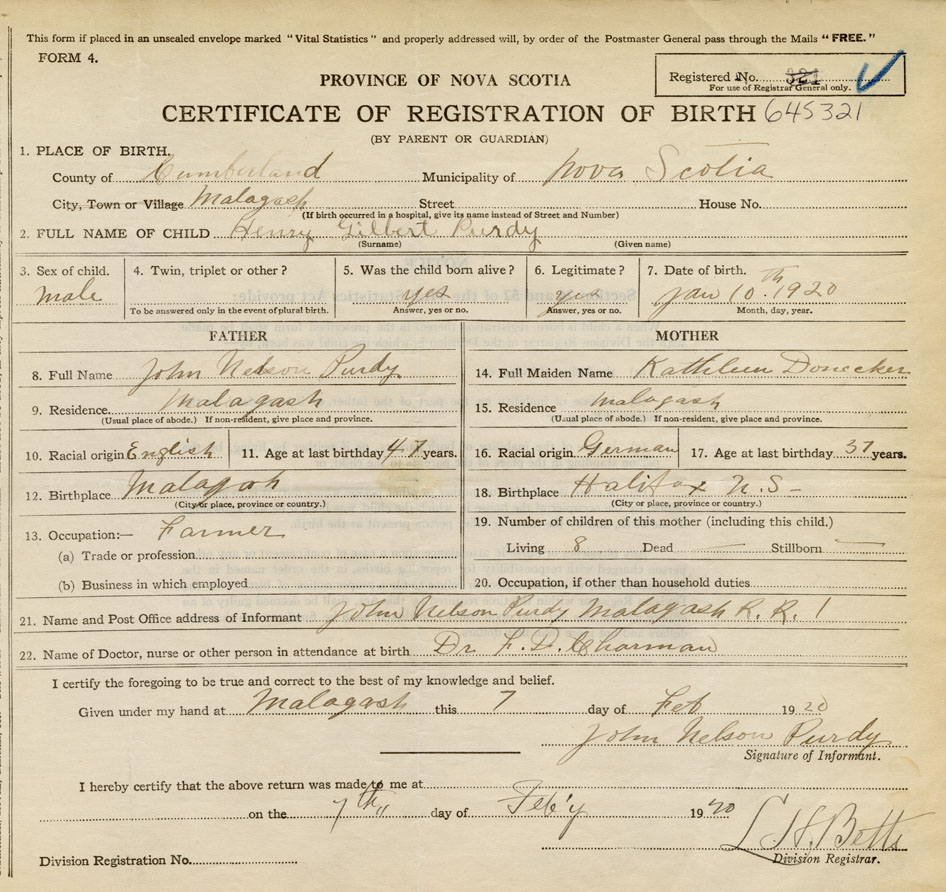 This form if placed in an unsealed envelope marked "Vital Statistics" and properly addressed will, by order of the Postmaster General pass through the Mails "FREE."
FORM 4.
Registered No. 321
For use of Registrar General only.
PROVINCE OF NOVA SCOTIA
CERTIFICATE OF REGISTRATION OF BIRTH 645321
(BY PARENT OR GUARDIAN)
1. PLACE OF BIRTH.
County of Cumberland Municipality of Nova Scotia
City, Town or Village Malagash Street House No.
(If birth occurred in a hospital, give its name instead of Street and Number)
2. FULL NAME OF CHILD Henry Gilbert Purdy
(Surname) (Given name)
3. Sex of child. 4. Twin, triplet or other? 5. Was the child born alive? 6. Legitimate? 7. Date of birth.
male yes yes Jan 10th. 1920
To be answered only in the event of plural birth. Answer, yes or no. Answer, yes or no. Month, day, year.
FATHER MOTHER
8. Full Name John Nelson Purdy 14. Full Maiden Name Kathleen Donecker
9. Residence Malagash 15. Residence Malagash
(Usual place of abode.) If non-resident, give place and province. (Usual place of abode.) If non-resident, give place and province.
10. Racial origin English 11. Age at last birthday 47 years. 16. Racial origin German 17. Age at last birthday 37 years.
12. Birthplace Malagash 18. Birthplace Halifax N.S-
(City or place, province or country.) (City or place, province or country.)
13. Occupation:— Farmer 19. Number of children of this mother (including this child.)
(a) Trade or profession Living 8 Dead — Stillborn —
(b) Business in which employed 20. Occupation, if other than household duties
21. Name and Post Office address of Informant John Nelson Purdy Malagash R. R. 1
22. Name of Doctor, nurse or other person in attendance at birth Dr F. D. Charman
I certify the foregoing to be true and correct to the best of my knowledge and belief.
Given under my hand at Malagash this 7 day of Feb 1920
John Nelson Purdy
Signature of Informant.
I hereby certify that the above return was made to me at
on the 7th day of Feb'y 1920
L H. Betts
Division Registration No. Division Registrar.